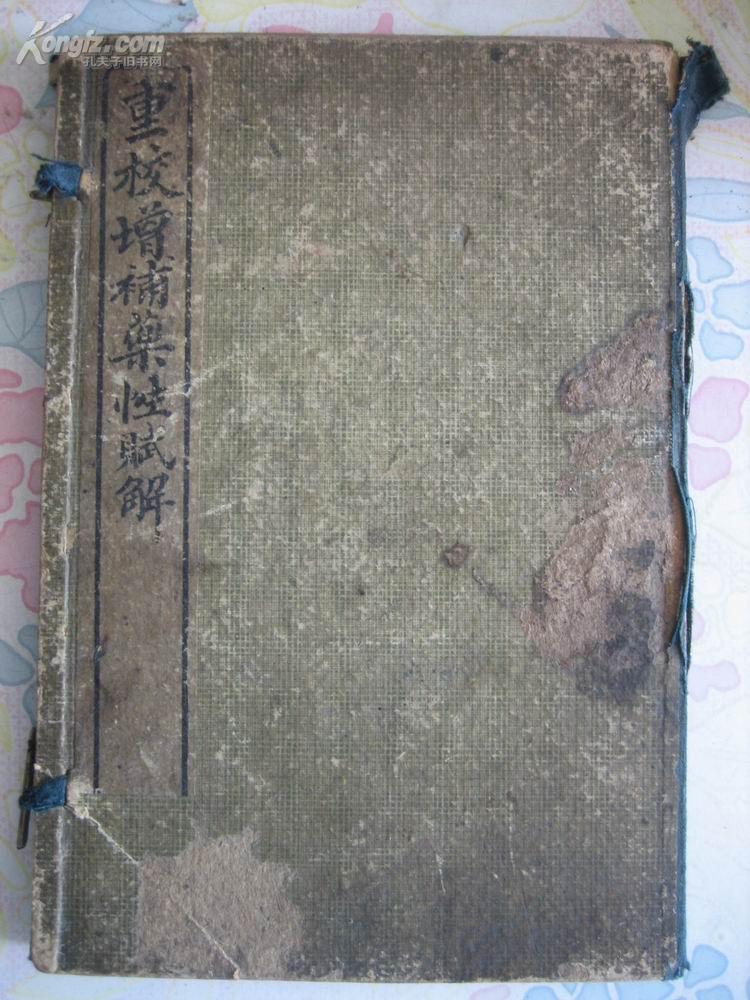 Kongfz.com
孔夫子旧书网
重校增補藥性賦解